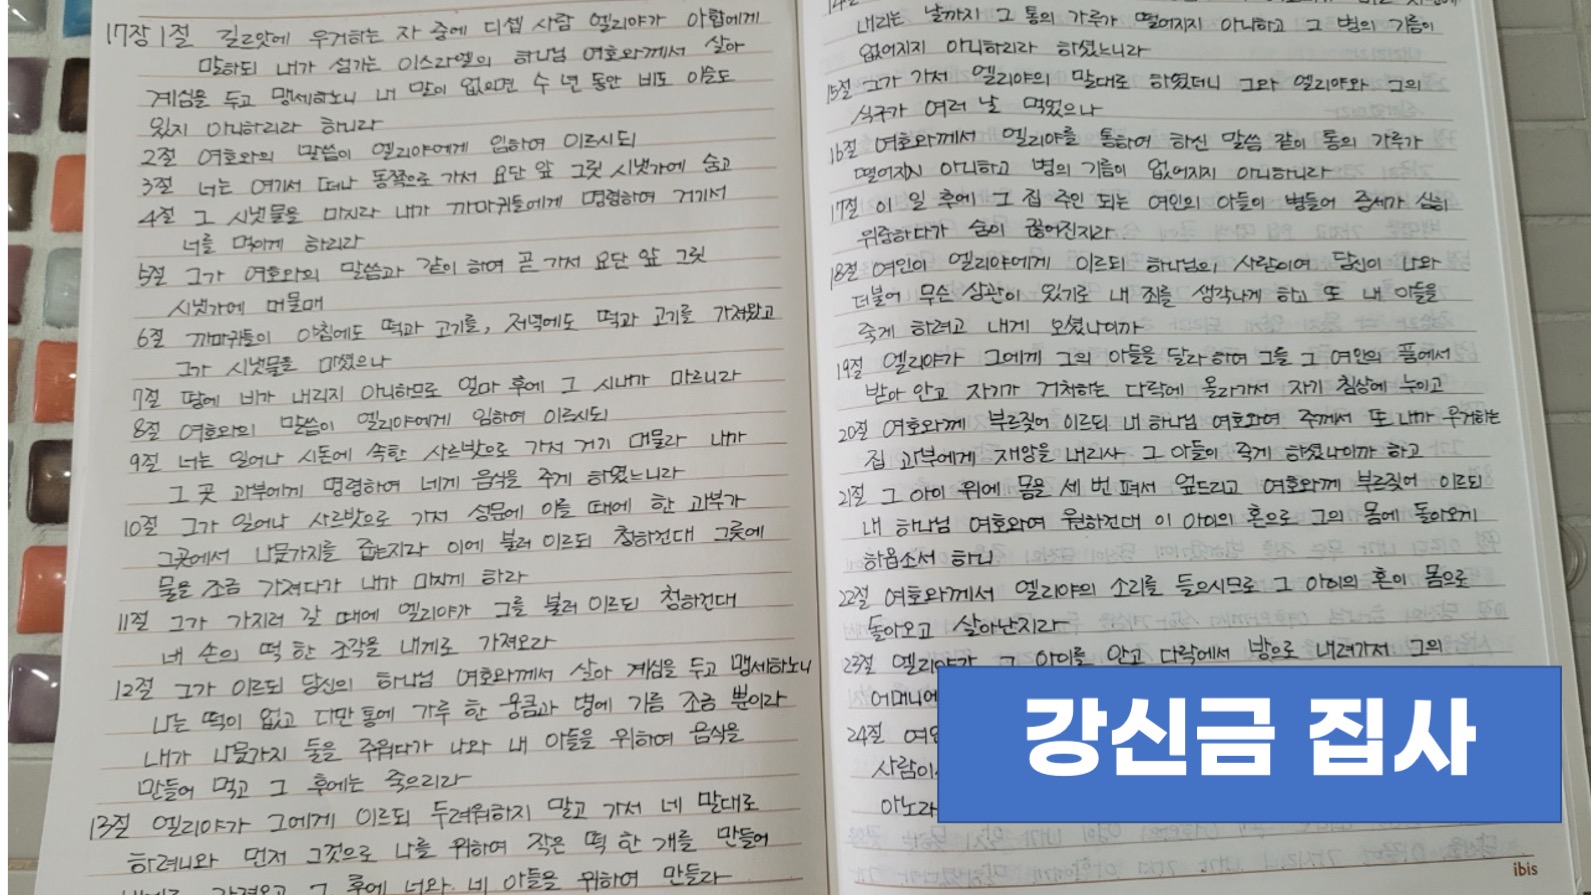 17장 1절 길르앗에 우거하는 자 중에 디셉 사람 엘리야가 아합에게
말하되 내가 섬기는 이스라엘의 하나님 여호와께서 살아
계심을 두고 맹세하노니 내 말이 없으면 수 년 동안 비도 이슬도
있지 아니하리라 하니라
2절 여호와의 말씀이 엘리야에게 임하여 이르시되
3절 너는 여기서 떠나 동쪽으로 가서 요단 앞 그릿 시냇가에 숨고
4절 그 시냇물을 마시라 내가 까마귀들에게 명령하여 거기서
너를 먹이게 하리라
5절 그가 여호와의 말씀과 같이 하여 곧 가서 요단 앞 그릿
시냇가에 머물매
6절 까마귀들이 아침에도 떡과 고기를, 저녁에도 떡과 고기를 가져왔고
그가 시냇물을 마셨으나
7절 땅에 비가 내리지 아니하므로 얼마 후에 그 시내가 마르니라
8절 여호와의 말씀이 엘리야에게 임하여 이르시되
9절 너는 일어나 시돈에 속한 사르밧으로 가서 거기 머물라 내가
그 곳 과부에게 명령하여 네게 음식을 주게 하였느니라
10절 그가 일어나 사르밧으로 가서 성문에 이를 때에 한 과부가
그곳에서 나뭇가지를 줍는지라 이에 불러 이르되 청하건대 그릇에
물을 조금 가져다가 내가 마시게 하라
11절 그가 가지러 갈 때에 엘리야가 그를 불러 이르되 청하건대
네 손의 떡 한 조각을 내게로 가져오라
12절 그가 이르되 당신의 하나님 여호와께서 살아 계심을 두고 맹세하노니
나는 떡이 없고 다만 통에 가루 한 움큼과 병에 기름 조금 뿐이라
내가 나뭇가지 둘을 주워다가 나와 내 아들을 위하여 음식을
만들어 먹고 그 후에는 죽으리라
13절 엘리야가 그에게 이르되 두려워하지 말고 가서 네 말대로
하려니와 먼저 그것으로 나를 위하여 작은 떡 한 개를 만들어
가져오고 그 후에 너와 네 아들을 위하여 만들라
내리는 날까지 그 통의 가루가 떨어지지 아니하고 그 병의 기름이
없어지지 아니하리라 하셨느니라
15절 그가 가서 엘리야의 말대로 하였더니 그와 엘리야와 그의
식구가 여러 날 먹었으나
16절 여호와께서 엘리야를 통하여 하신 말씀 같이 통의 가루가
떨어지지 아니하고 병의 기름이 없어지지 아니하니라
17절 이 일 후에 그 집 주인 되는 여인의 아들이 병들어 증세가 심히
위중하다가 숨이 끊어진지라
18절 여인이 엘리야에게 이르되 하나님의 사람이여 당신이 나와
더불어 무슨 상관이 있기로 내 죄를 생각나게 하고 또 내 아들을
죽게 하려고 내게 오셨나이까
19절 엘리야가 그에게 그의 아들을 달라 하여 그를 그 여인의 품에서
받아 안고 자기가 거처하는 다락에 올라가서 자기 침상에 누이고
20절 여호와께 부르짖어 이르되 내 하나님 여호와여 주께서 또 내가 우거하는
집 과부에게 재앙을 내리사 그 아들이 죽게 하셨나이까 하고
21절 그 아이 위에 몸을 세 번 펴서 엎드리고 여호와께 부르짖어 이르되
내 하나님 여호와여 원하건대 이 아이의 혼으로 그의 몸에 돌아오게
하옵소서 하니
22절 여호와께서 엘리야의 소리를 들으시므로 그 아이의 혼이 몸으로
돌아오고 살아난지라
23절 엘리야가 그 아이를 안고 다락에서 방으로 내려가서 그의
어머니에
24절 여인
사람이
아노라
강신금 집사
ibis